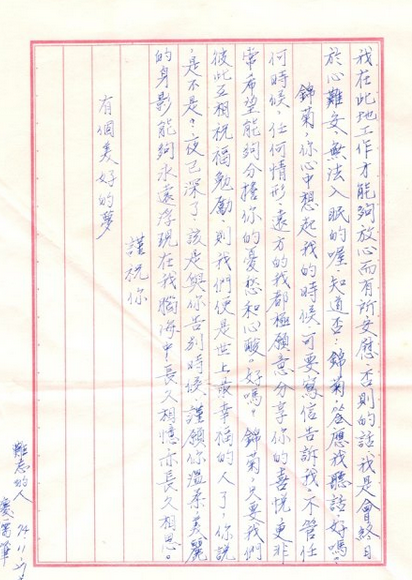 我在此地工作才能夠放心而有所安慰，否則的話，我是會終日
於心難安，無法入眠的喔，知道否，錦菊，答應我聽話，好嗎？
錦菊，你心中想起我的時候，可要寫信告訴我，不管任
何時候，任何情形，遠方的我都極願意分享你的喜悅，更非
常希望能夠分擔你的憂愁和心酸，好嗎？錦菊，只要我們
彼此互相祝福勉勵，則我們便是世上最幸福的人了，你說
，是不是？夜已深了，該是與你告別時候，謹願你溫柔美麗
的身影能夠永遠浮現在我腦海中，長久相憶亦長久相思。
謹祝你
有個美好的夢
難忘的人
74.11.